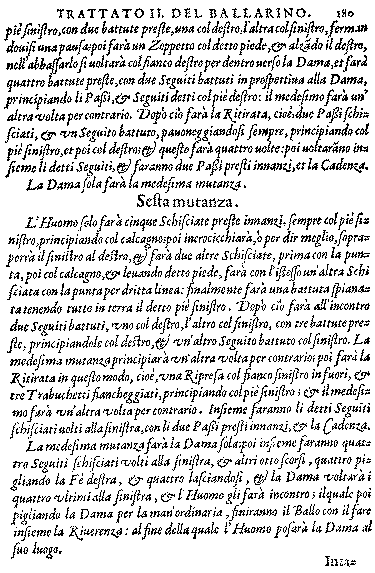 TRATTATO II. DEL BALLARINO. 180
piè sinistro, con due battute preste, una col destro, l'altra col sinistro, ferman
douisi una pausa: poi farà un Zoppetto col detto piede, & alzãdo il destro,
nell'abbassarlo si uoltarà col fianco destro per dentro uerso la Dama, et farà
quattro battute preste, con due Seguiti battuti in prospettiua alla Dama,
principiando li Passi, & Seguiti detti col piè destro: il medesimo farà un'
altra volta per contrario. Dopò ciò farà la Ritirata, cioè due Passi schis-
sciati, & vn Seguito battuto, pauoneggiandosi sempre, principiando col
piè sinistro, et poi col destro; & questo farà quattro uolte: poi uoltarãno in-
sieme li detti Seguiti, & faranno due Passi presti innanzi, et la Cadenza.
La Dama sola farà la medesima mutanza.
Sesta mutanza.
L'Huomo solo farà cinque Schisciate preste innanzi. sempre col piè si-
nistro, principiando col calcagno: poi incrocicchiarà, ò per dir meglio, sopra-
porrà il sinistro al destro, & farà due altre Schisciate, prima con la pun-
ta, poi col calcagno, & leuando detto piede, farà con l'istesso un'altra Schi
sciata con la punta per dritta linea: finalmente farà una battuta spiana-
ta tenendo tutto in terra il detto piè sinistro. Dopò ciò farà all'incontro
due Seguiti battuti, vno col destro, l'altro col sinistro, con tre battute pre-
ste, principiandole col destro, & un'altro Seguito battuto col sinistro. La
medesima mutanza principiarà un'altra volta per contrario: poi farà la
Ritirata in questo modo, cioè, vna Ripresa col fianco sinistro in fuori, &
tre Trabuchetti fiancheggiati, principiando col piè sinistro: & il medesi-
mo farà un'altra volta per contrario. Insieme faranno li detti Seguiti
schisciati uolti alla sinistra, con li due Passi presti innanzi, & la Cadenza.
La medesima mutanza farà la Dama sola: poi insieme faranno quat-
tro Seguiti schisciati volti alla sinistra, & altri otto scorsi, quattro pi-
gliando la Fè destra, & quattro lasciandosi, & la Dama voltarà i
quattro vltimi alla sinistra, & l'Huomo gli farà incontro; il quale poi
pigliando la Dama per la man'ordinaria, finiranno il Ballo con il fare
insieme la Riuerenza: al fine della quale l'Huomo posarà la Dama al
suo luogo.